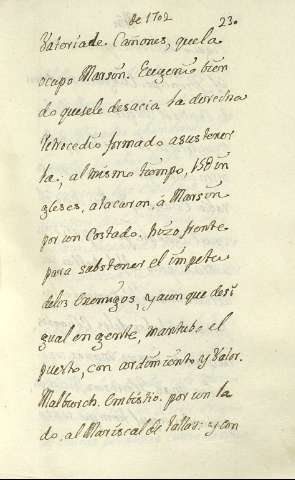 de 1702 230
Vatoria de Cañones, que la
ocupo Marsin. Eugenio bien
do quesele desacia la derecha
Retrocedio formado asustener
la, al mismo tiempo, 158 in
gleses, atacaron, á Marsin
por un Costado. hizo frente
para sabstener el impetu
delos Enemigos, y aun que desi
gual en gente, mantubo el
puesto, con ardimiento y Valor.
Malburch. embistio. por un la
do, al Mariscal de Tallar: y con